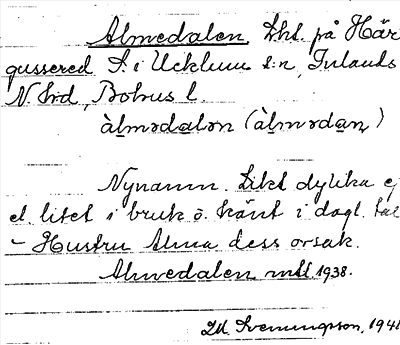 Almedalen, Lht. på Här
gussered S. i Ucklum s:n, Inlands
N. Hrd, Bohus l.
àl̥mədalən (àl̥mədan̥)
Nynamn. Likt dylika ej
el. litet i bruk o. känt i dagl. tal
– Hustru Alma dess orsak.
Almedalen mtl 1938.
Svenungsson, 1941